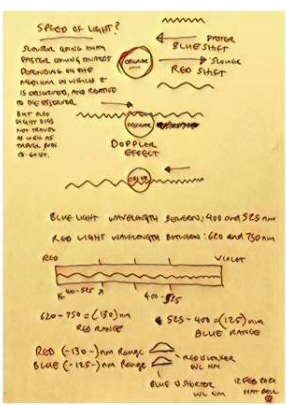 SPEED OF LIGHT?
SLOWER GOING AWAY
FASTER COMING TOWARDS
DEPENDING ON THE
MEDIUM IN WHICH IT
IS OBSERVED, AND RELATIVE
TO THE OBSERVER
BUT ALSO
LIGHT DOES
NOT TRAVEL
AS WELL AS
TRAVEL
FASTER
BLUE SHIFT
OBSERVER
SLOWER
RED SHIFT
OBSERVER
DOPPLER
EFFECT
BLUE LIGHT WAVELENGTH BETWEEN: 400 and 525 nm
RED LIGHT WAVELENGTH BETWEEN: 620 and 750 nm
RED VIOLET
400-525
620-750 = (130) nm
RED RANGE
525-400 = (125) nm
BLUE RANGE
RED (-130-) nm Range
BLUE (-125-) nm Range
RED LONGER
WL NM
BLUE SHORTER
WL NM
12 FEB
MAT BELL